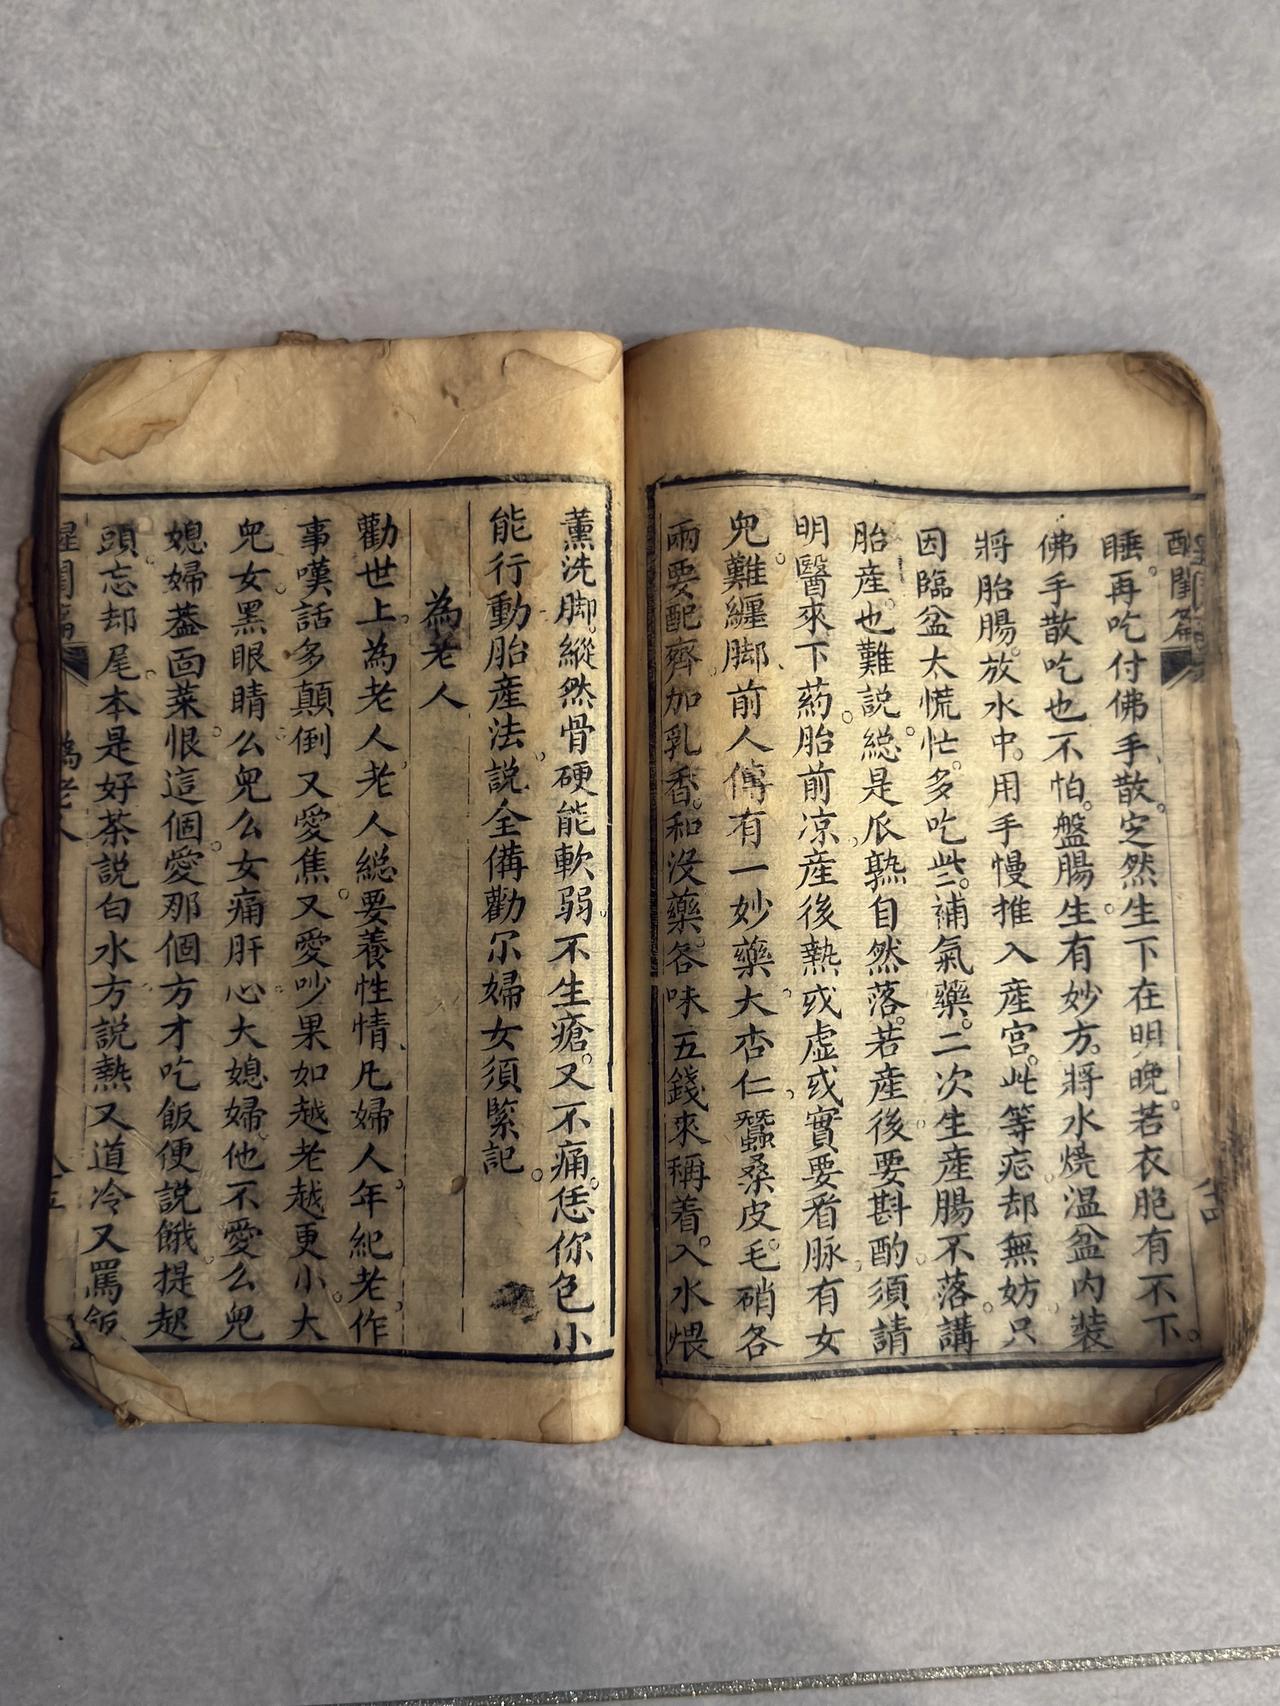 醒閨篇
睡再吃付佛手散定然生下在明晚若衣胞有不下
佛手散吃也不怕盤腸生有妙方將水燒温盆內裝
將胎腸放水中用手慢推入産宮此等症却無妨只
因臨盆太慌忙多吃些補氣藥二次生産腸不落講
胎産也難説総是瓜熟自然落若産後要斟酌須請
明醫來下葯胎前凉産後熱或虚或實要看脉有女
兒難纏脚前人傳有一妙藥大杏仁蠶桑皮毛硝各
兩要配齊加乳香和沒藥各味五錢來稱着入水煨
薰洗脚縱然骨硬能軟弱不生瘡又不痛恁你包小
能行動胎産法説全備勸尔婦女須緊記
為老人
勸世上為老人老人総要養性情凡婦人年紀老作
事嘆話多顛倒又愛焦又愛吵果如越老越更小大
兒女黑眼睛么兒么女痛肝心大媳婦他不愛么兒
媳婦葢面菜恨這個愛那個方才吃飯便說餓提起
頭忘却尾本是好茶説白水方說熱又道冷又罵飯
醒閨篇
為老人